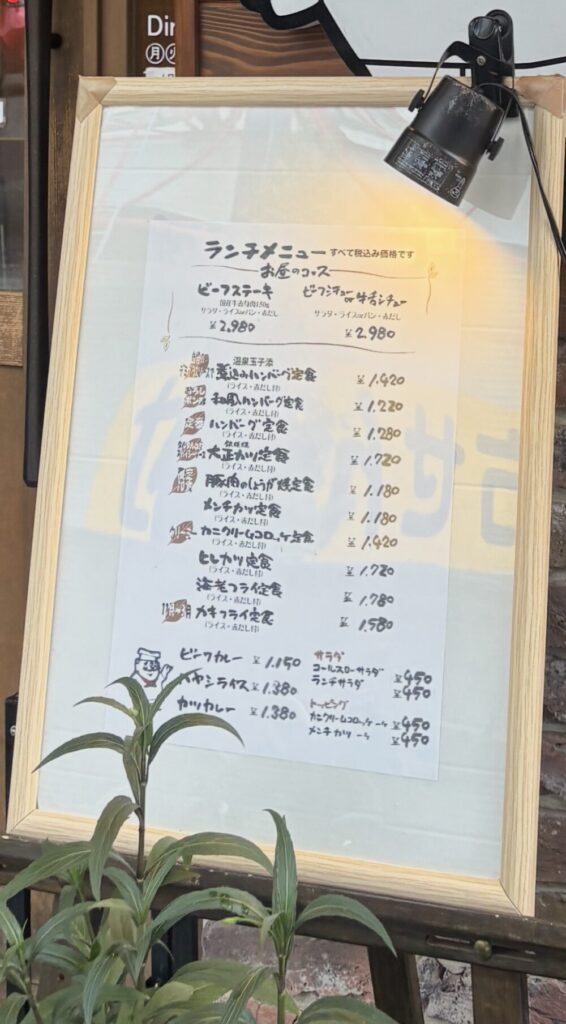 Din
月火
ランチメニュー すべて税込み価格です
お昼のコース
ビーフステーキ ビーフシチューor牛舌シチュー
国産牛赤身肉150g
サラダ・ライスorパン・赤だし サラダ・ライスorパン・赤だし
¥2,980 ¥2,980
温泉玉子添
煮込みハンバーグ定食 ¥1.420
(ライス・赤だし付)
和風ハンバーグ定食 ¥1.220
(ライス・赤だし付)
定番 ハンバーグ定食 ¥1.280
(ライス・赤だし付)
大正カツ定食 ¥1.720
(ライス・赤だし付)
豚肉のしょうが焼定食 ¥1.180
(ライス・赤だし付)
メンチカツ定食 ¥1.180
(ライス・赤だし付)
クリーミー カニクリームコロッケ定食 ¥1.420
(ライス・赤だし付)
ヒレカツ定食 ¥1.720
(ライス・赤だし付)
海老フライ定食 ¥1.780
(ライス・赤だし付)
カキフライ定食 ¥1.580
(ライス・赤だし付)
ビーフカレー ¥1.150
ハヤシライス ¥1.380
カツカレー ¥1.380
サラダ
コールスローサラダ ¥450
ランチサラダ ¥450
トッピング
カニクリームコロッケ 一ケ ¥450
メンチカツ 一ケ ¥450